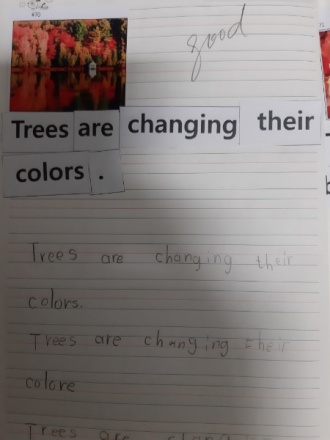 good
Trees are changing their
colors .
Trees are changing their
colors.
Trees are changing their
colore
Trees are